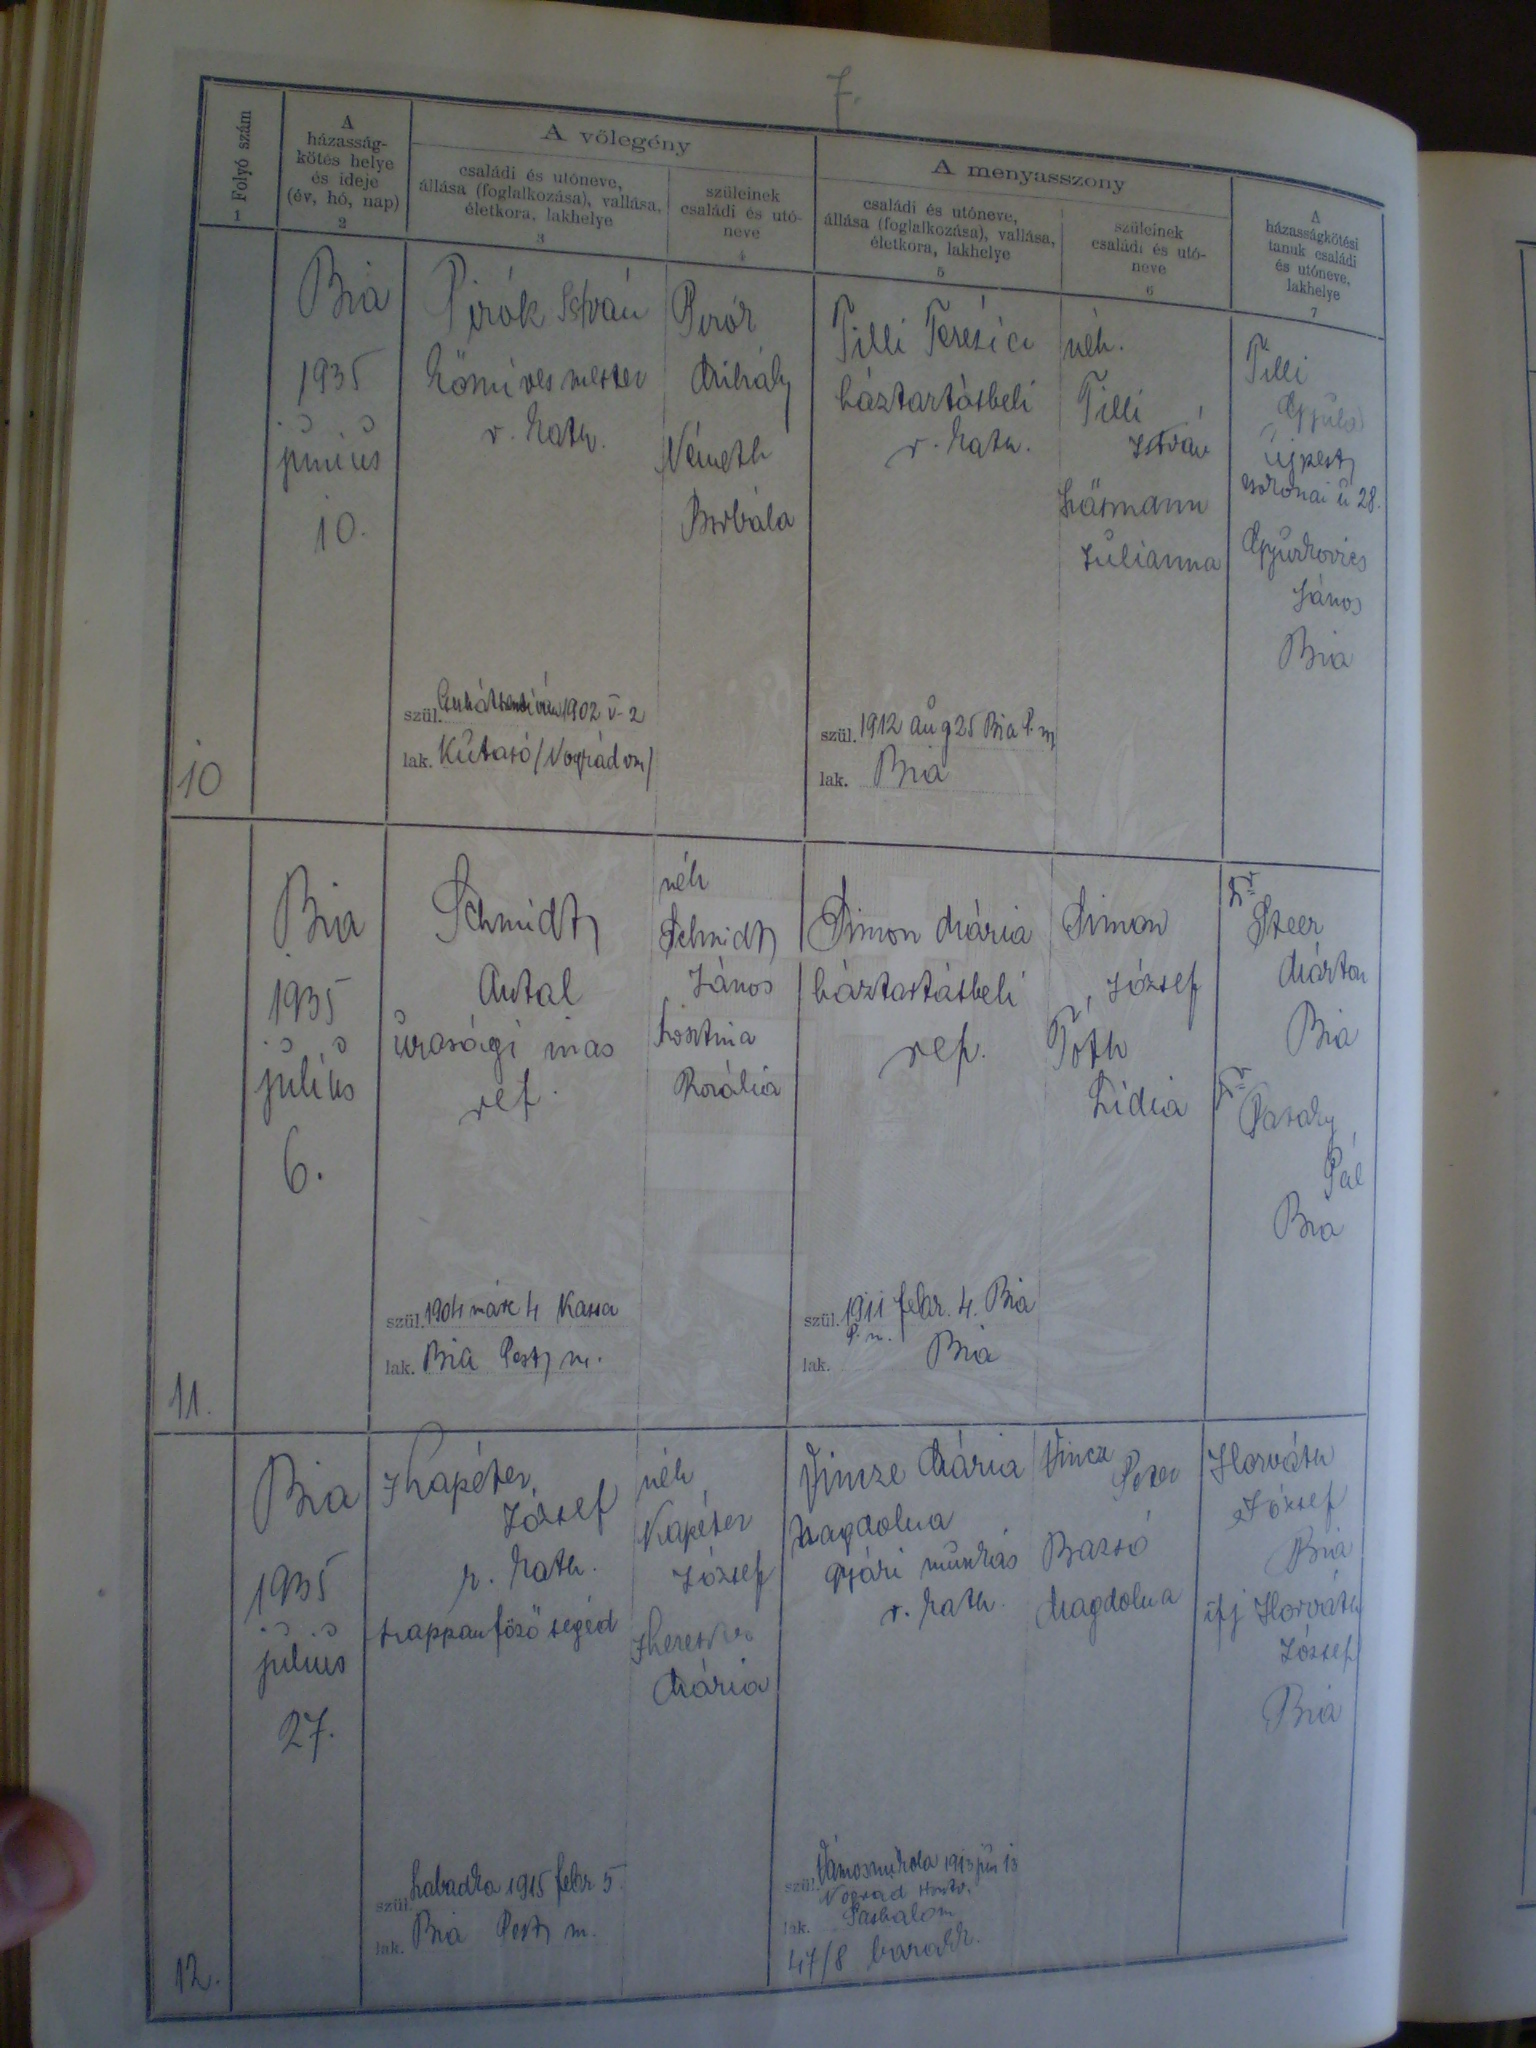 7.
Folyó szám
1
A
házasság-
kötés helye
és ideje
(év, hó, nap)
2
A vőlegény
családi és utóneve,
állása (foglalkozása), vallása,
életkora, lakhelye
3
szüleinek
családi és utó-
neve
4
A menyasszony
családi és utóneve,
állása (foglalkozása), vallása,
életkora, lakhelye
5
szüleinek
családi és utó-
neve
6
A
házasságkötési
tanuk családi
és utóneve,
lakhelye
7
10
Bia
1935
június
10.
Pirók István
kőmívesmester
r. kath.
szül. 1902 V-2
lak. Kutasó (Nográd vm)
Pirók
Mihály
Németh
Borbála
Tilli Terézia
háztartásbeli
r. kath.
szül. 1912 aug 25 Bia P. m
lak. Bia
néh.
Tilli
István
Julianna
Tilli
Gyula
Újpest
28.
Gyurkovics
János
Bia
11.
Bia
1935
július
6.
Schmidt
Antal
urasági inas
ref.
szül. 1904 márc 4 Kassa
lak. Bia Pest m.
néh
Schmidt
János
Rozália
Simon Mária
háztartásbeli
ref.
szül. 1911 febr. 4. Bia
P. m.
lak. Bia
Simon
József
Tóth
Lidia
Szeer
Márton
Bia
Pál
Bia
12.
Bia
1935
július
27.
József
r. kath.
szappanfőző segéd
szül. Szabadka 1915 febr 5.
lak. Bia Pest m.
néh
József
Mária
Vincze Mária
Magdolna
gyári munkás
r. kath.
szül. Vámosmikola 1913 jún 13
Nógrád Hont v.
lak. Pashalom
47/8 barakk.
Vincze
Péter
Bazsó
Magdolna
Horváth
József
Bia
ifj Horváth
József
Bia